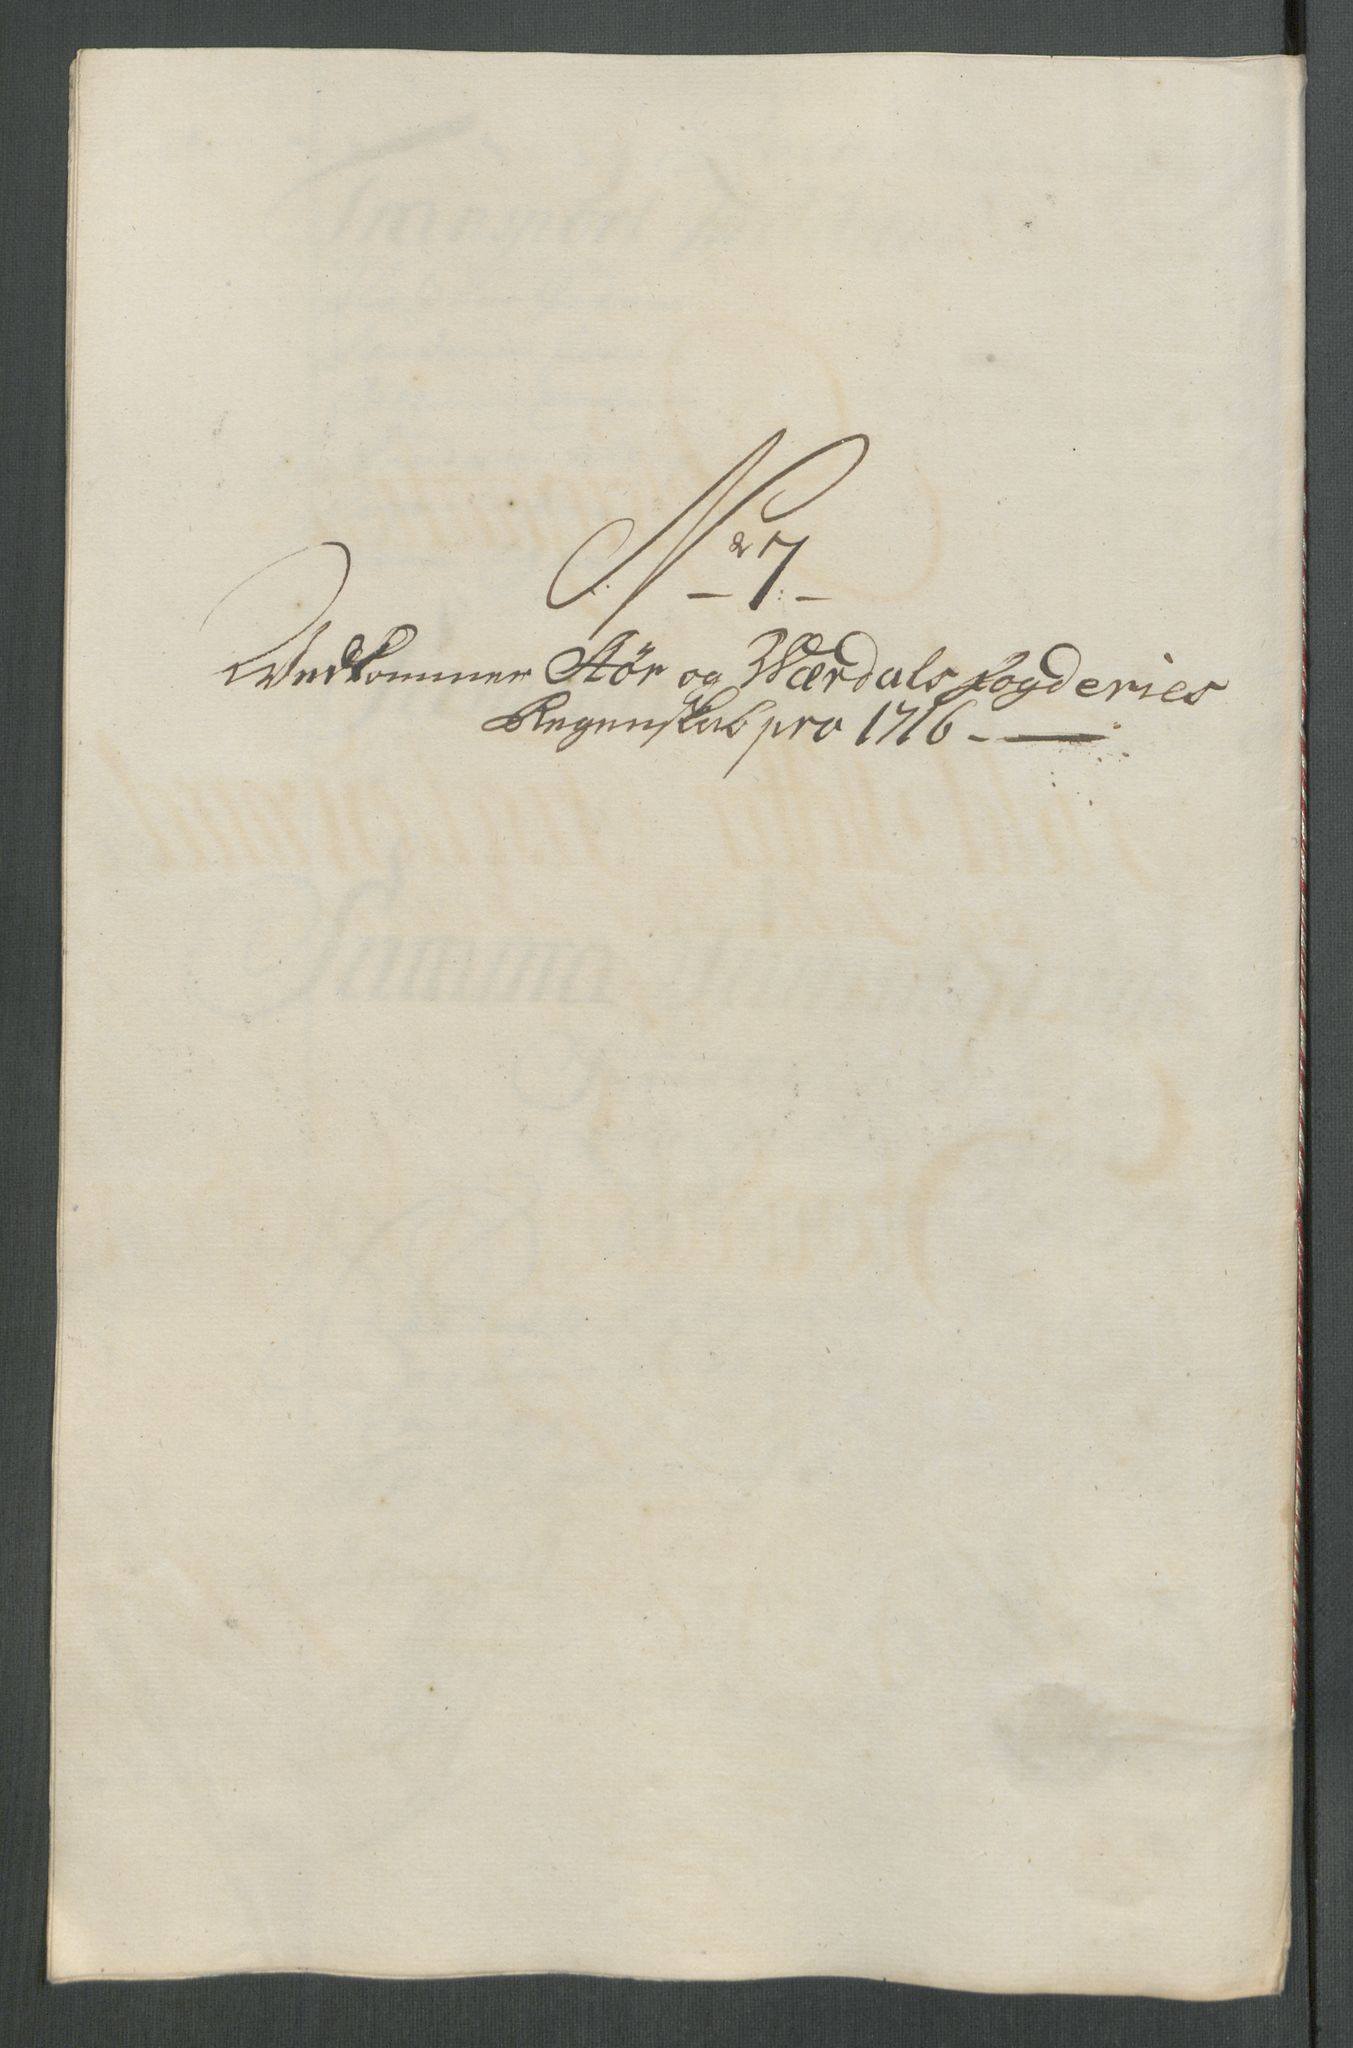 No 7
Vedkommer Stör og Værdals fogderies
Regenskab pro 1716